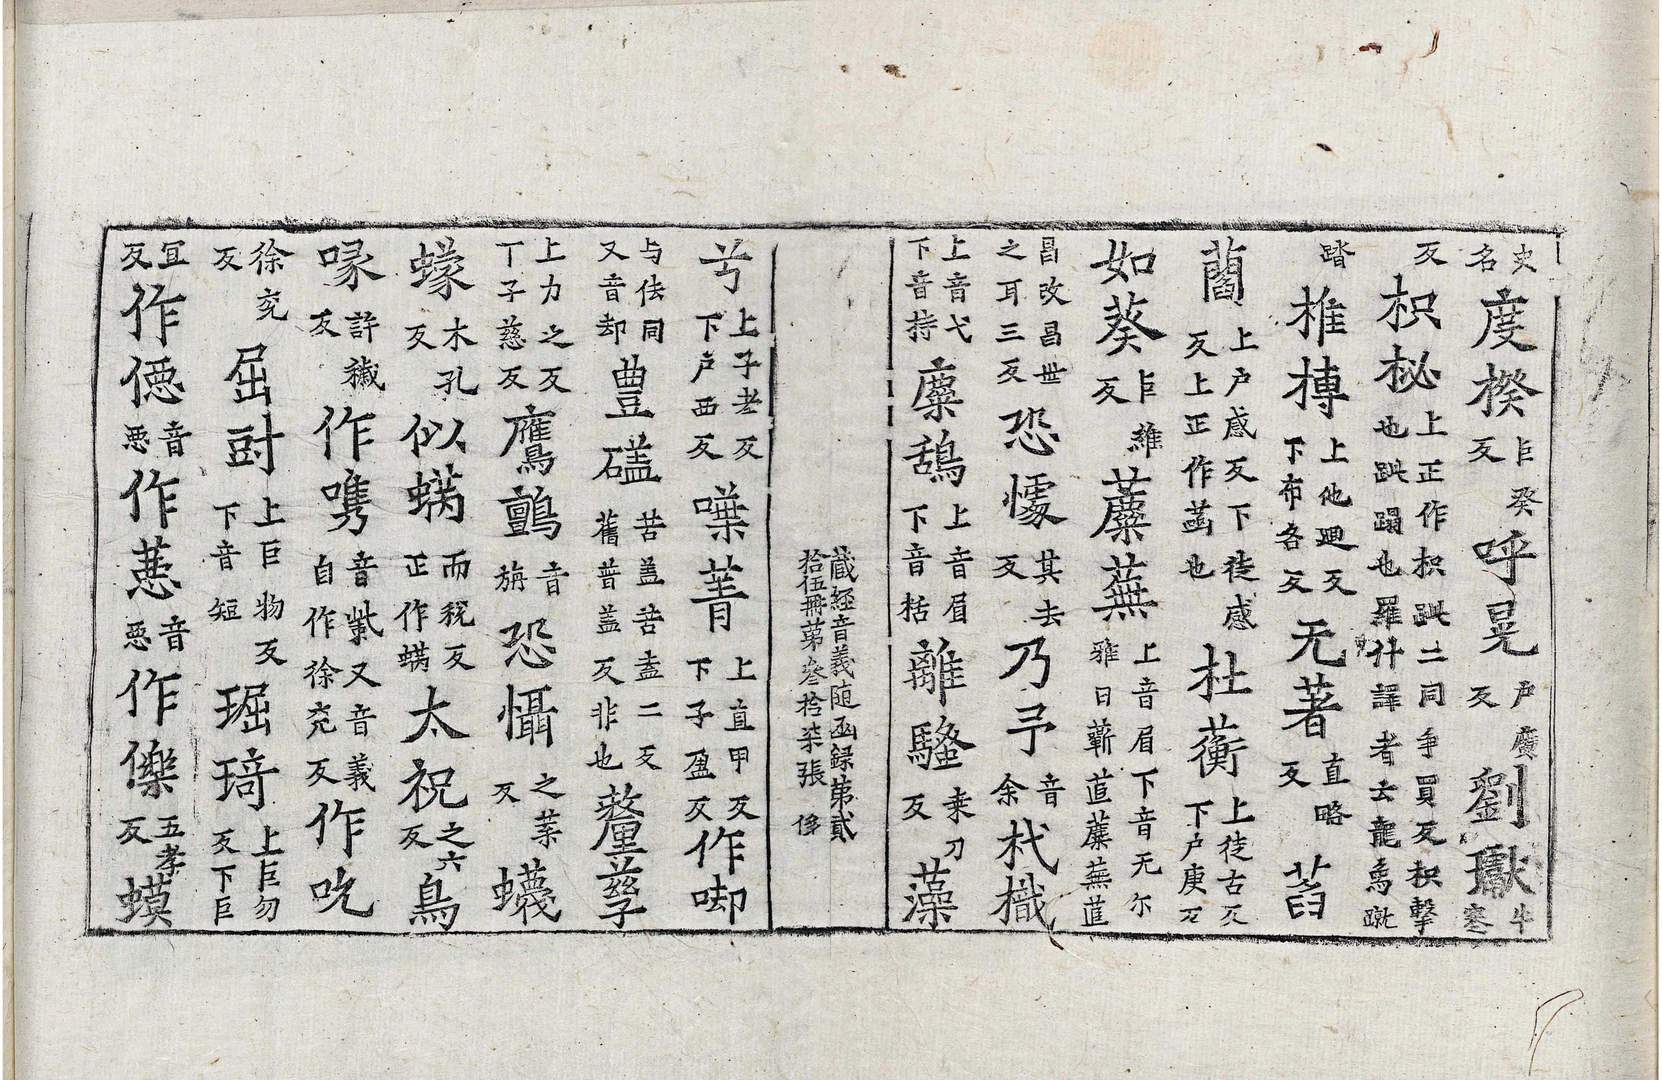 史名度揆巨癸反呼晃戸廣反劉瓛牛寒
反枳柲上正作枳䟕二同爭買反枳擊也䟕蹋也羅什譯者云龍鳥蹴
踏椎摶上他廻反下布各反无著直略反萏
藺上戸感反下徒感反上正作菡也杜蘅上徒古反下戸庚反
如葵巨維反蘪蕪上音眉下音无尔雅曰蘄茝蘪蕪茝
昌改昌世之耳三反恐懅其去反乃弓音余杙樴
上音弋下音持麋鴰上音眉下音括離騷桒刀反藻
藏經音義随函録第貳拾伍冊第叁拾柒張
兮上子老反下戸西反嘩菁上直甲反下子盈反作啣
与佉同又音却豊礚苦盖苦盍二反舊普盖反非也犛孳
上力之反下子慈反鷹鸇音旃恐懾之葉反蠛
蠓木孔反似螨而稅反正作螨太祝之六反鳥
喙許穢反作嘴音觜又音義自作徐兖反作吮
徐兖反屈㔘上巨物反下音短琚琦上巨勿反下巨
宜反作僫音惡作蕙音惡作㒓五孝反蟆